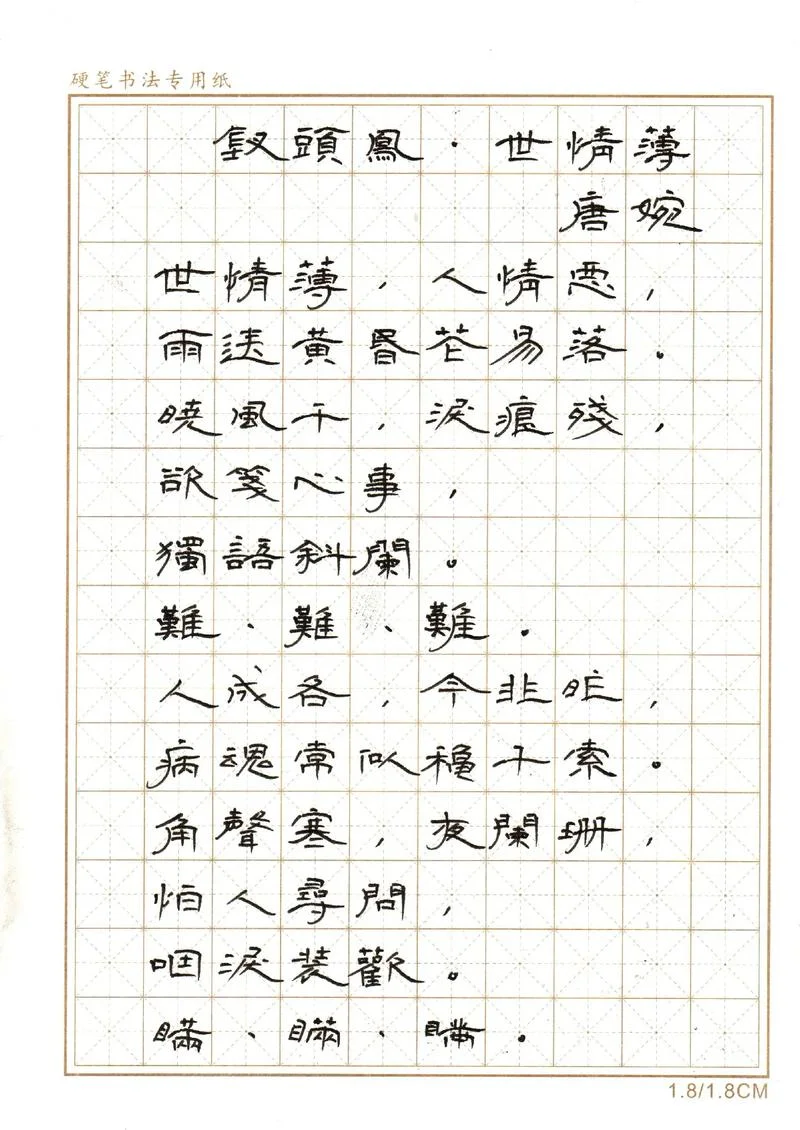 硬笔书法专用纸
釵頭鳳·世情薄
唐婉
世情薄，人情恶，
雨送黄昏花易落。
曉風干，淚痕殘，
欲箋心事，
獨語斜闌。
難、難、難。
人成各，今非昨，
病魂常似秋千索。
角聲寒，夜闌珊，
怕人尋問，
咽淚装歡。
瞞、瞞、瞞。
1.8/1.8CM